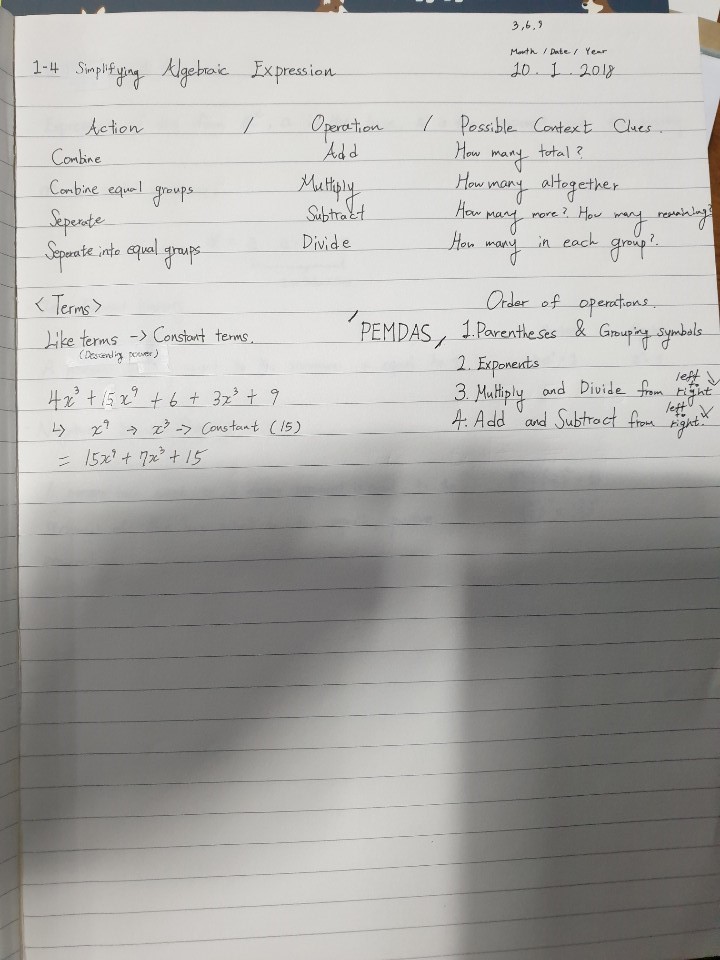 3,6,9
Month / Date / Year
1-4 Simplifying Algebraic Expression
10. 1. 2018
Action / Operation / Possible Context Clues.
Combine Add How many total?
Combine equal groups Multiply How many altogether
Seperate Subtract How many more? How many remaining?
Seperate into equal groups Divide How many in each group?
<Terms>
Like terms -> Constant terms.
(Descending power)
4x³ + 15x⁹ + 6 + 3x³ + 9
↳ x⁹ → x³ → Constant (15)
= 15x⁹ + 7x³ + 15
Order of operations.
'PEMDAS, 1. Parentheses & Grouping symbols
2. Exponents
3. Multiply and Divide from left to right
4. Add and Subtract from left to right.